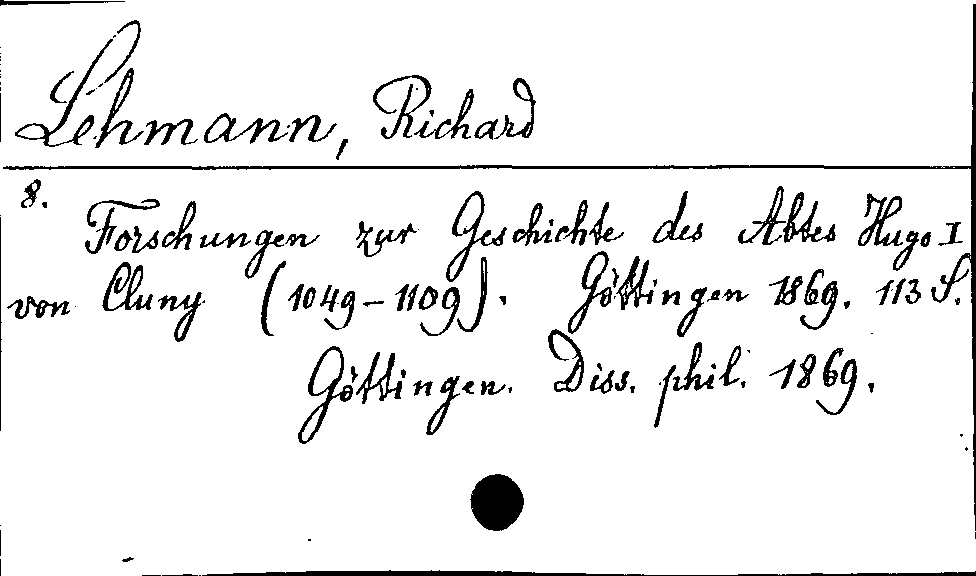 Lehmann, Richard
8.
Forschungen zur Geschichte des Abtes Hugo I
von Cluny (1049-1109). Göttingen 1869. 113 S.
Göttingen. Diss. phil. 1869.